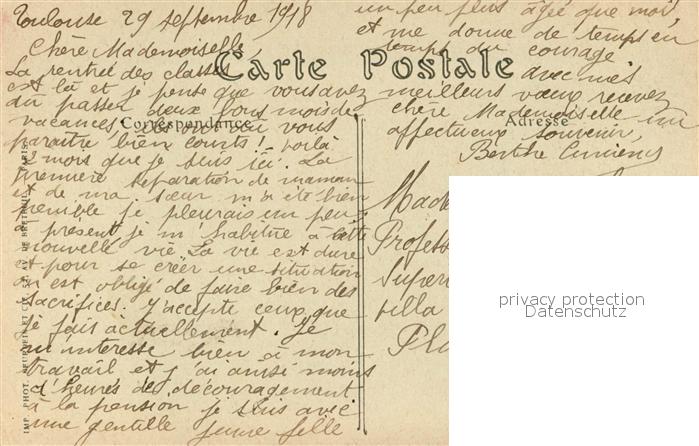 Toulouse 29 septembre 1918
Chère Mademoiselle,
La rentrée des classes
est là et je pense que vous avez
dû passer deux bons mois de
vacances, vous
paraître bien courts! Voilà
2 mois que je suis ici. La
première séparation de maman
et de ma sœur m'a été bien
pénible je pleurais un peu,
à présent je m'habitue à cette
nouvelle vie. La vie est dure
et pour se créer une situation
on est obligé de faire bien des
sacrifices. J'accepte ceux que
je fais actuellement. Je
m'intéresse bien à mon
travail et j'ai ainsi moins
d'heures de découragement
à la pension je suis avec
une gentille jeune fille
un peu plus âgée que moi,
et me donne de temps en
temps du courage
avec mes
meilleurs vœux recevez
chère Mademoiselle un
affectueux souvenir,
Berthe
Carte Postale
Correspondance
Adresse
Made
Profess
Super
Villa
Pla
privacy protection
Datenschutz
IMP. PHOT.